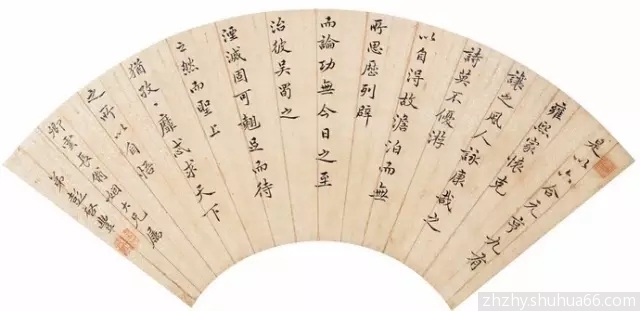 是以六合元亨九有
雍熙家懷克
讓之風人詠康哉之
詩莫不優游
以自得故澹泊而無
所思歷列辟
而論功無今日之至
治彼吳蜀之
湮滅固可翹足而待
之然而聖上
猶孜〻靡忒求天下
之所以自悟
卿雲長翁姻大兄属
弟彭啓豐
zhzhy.shuhua66.com